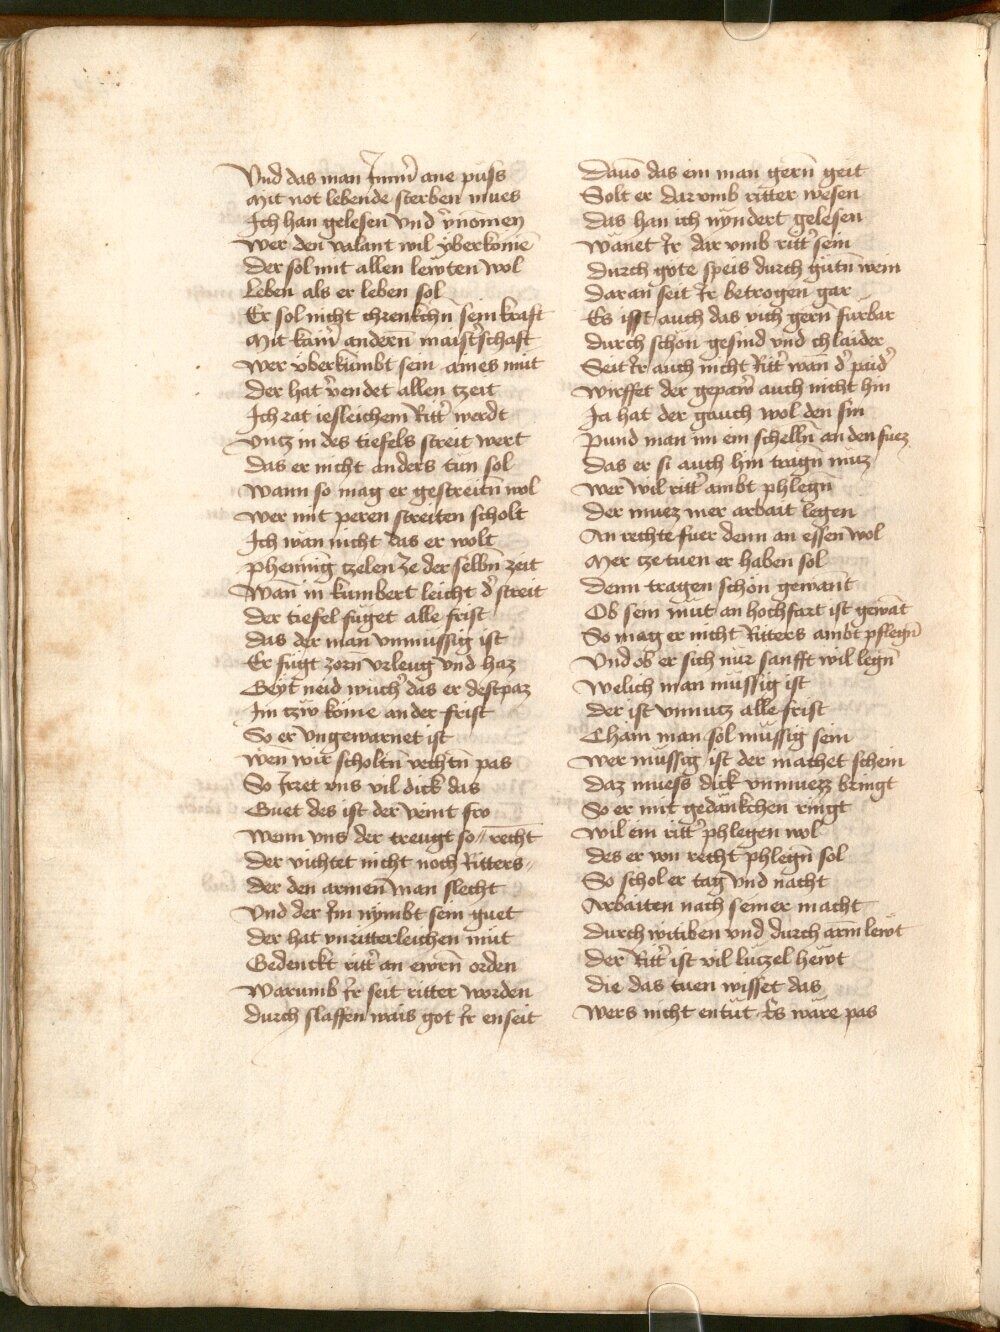 Vnd das man Jmm̄ ane puͤss
Mit not lebende sterben mues
Ich han gelesen Vnd v̄nomen
Wer den valant wil ÿberkome
Der sol mit allen lewten wol
Leben als er leben sol
Er sol nicht chrenkchn̄ sein krafft
Mit kain̄ andern̄ maist̄schafft
Wer vberkümbt sein aines müt
Der hat v̄endet allen tzeit
Ich rat iesleichem Ritt̄ werdt
Vntz in des tiefels streit wert
Das er nicht anders tün sol
Wann so mag er gestreitn̄ wol
Wer mit peren streiten scholt
Ich wän nicht das er wolt
Phenning tzelen ze der selbn̄ zeit
Wan̄ in kümbert leicht d̄ streit
Der tiefel füget alle frist
Das der man vnmüssig ist
Er fügt zorn̄ vrleug vnd haz
Geyt neid wüch̄ das er destpaz
Im tzw köme an der frist
So er vngewarnet ist
Wen̄ wir scholtn̄ rechtn̄ pas
So Jrret vns vil dick das
Guet des ist der veint fro
Wenn vns der treugt so // recht
Der richtet nicht noch Ritters //
Der den armen man slecht
Vnd der Im nymbt sein guet
Der hat vnritterleichen müt
Gedenckt ritt̄ an ewrn̄ orden
Warumb Jr seit ritter worden
Durch slaffen wais got Jr enseit
Dauō das ein man gern̄ geit
Solt er dar vmb ritter wesen
Das han ich nyndert gelesen
Wanet Jr dar vmb ritt̄ sein
Durch gote speis durch gütn̄ wein
Daran seit Jr betrogen gar
Es isst auch das vich gern̄ fürbar
Durch schon gesmid vnd chlaider
Seit Jr auch nicht Ritt̄ wan̄ d̄ paid̄
Wirffet der gepawr̄ auch nicht hin
Ja hat der gauch wol den sin
Pund man im ein schelln̄ an den fuez
Das er si auch hin tragn̄ müz
Wer wil ritt̄ ambt phlegn̄
Der muez mer arbait legen
An rechte fuer denn an essen wol
Mer tze tuen er haben sol
Denn tragen schön gewant
Ob sein müt an hochfart ist gewät
So mag er nicht Ritters ambt pflegn̄
Vnd ob er sich nür sanfft wil legn̄
Welich man müssig ist
Der ist vnnutz alle frist
Cham man sol müssig sein
Wer müssig ist der machet schein
Daz muess dick vnmuezz bringt
So er mit gedänkchen ringt
Wil ein ritt̄ phlegen wol
Des er von recht phlegn̄ sol
So schol er tag vnd nacht
Arbaiten nach seiner macht
Durch witiben vnd durch arm lewt
Der Ritt̄ ist vil lützel hewt
Die das tuen wisset das
Wers nicht entüt Es wäre pas